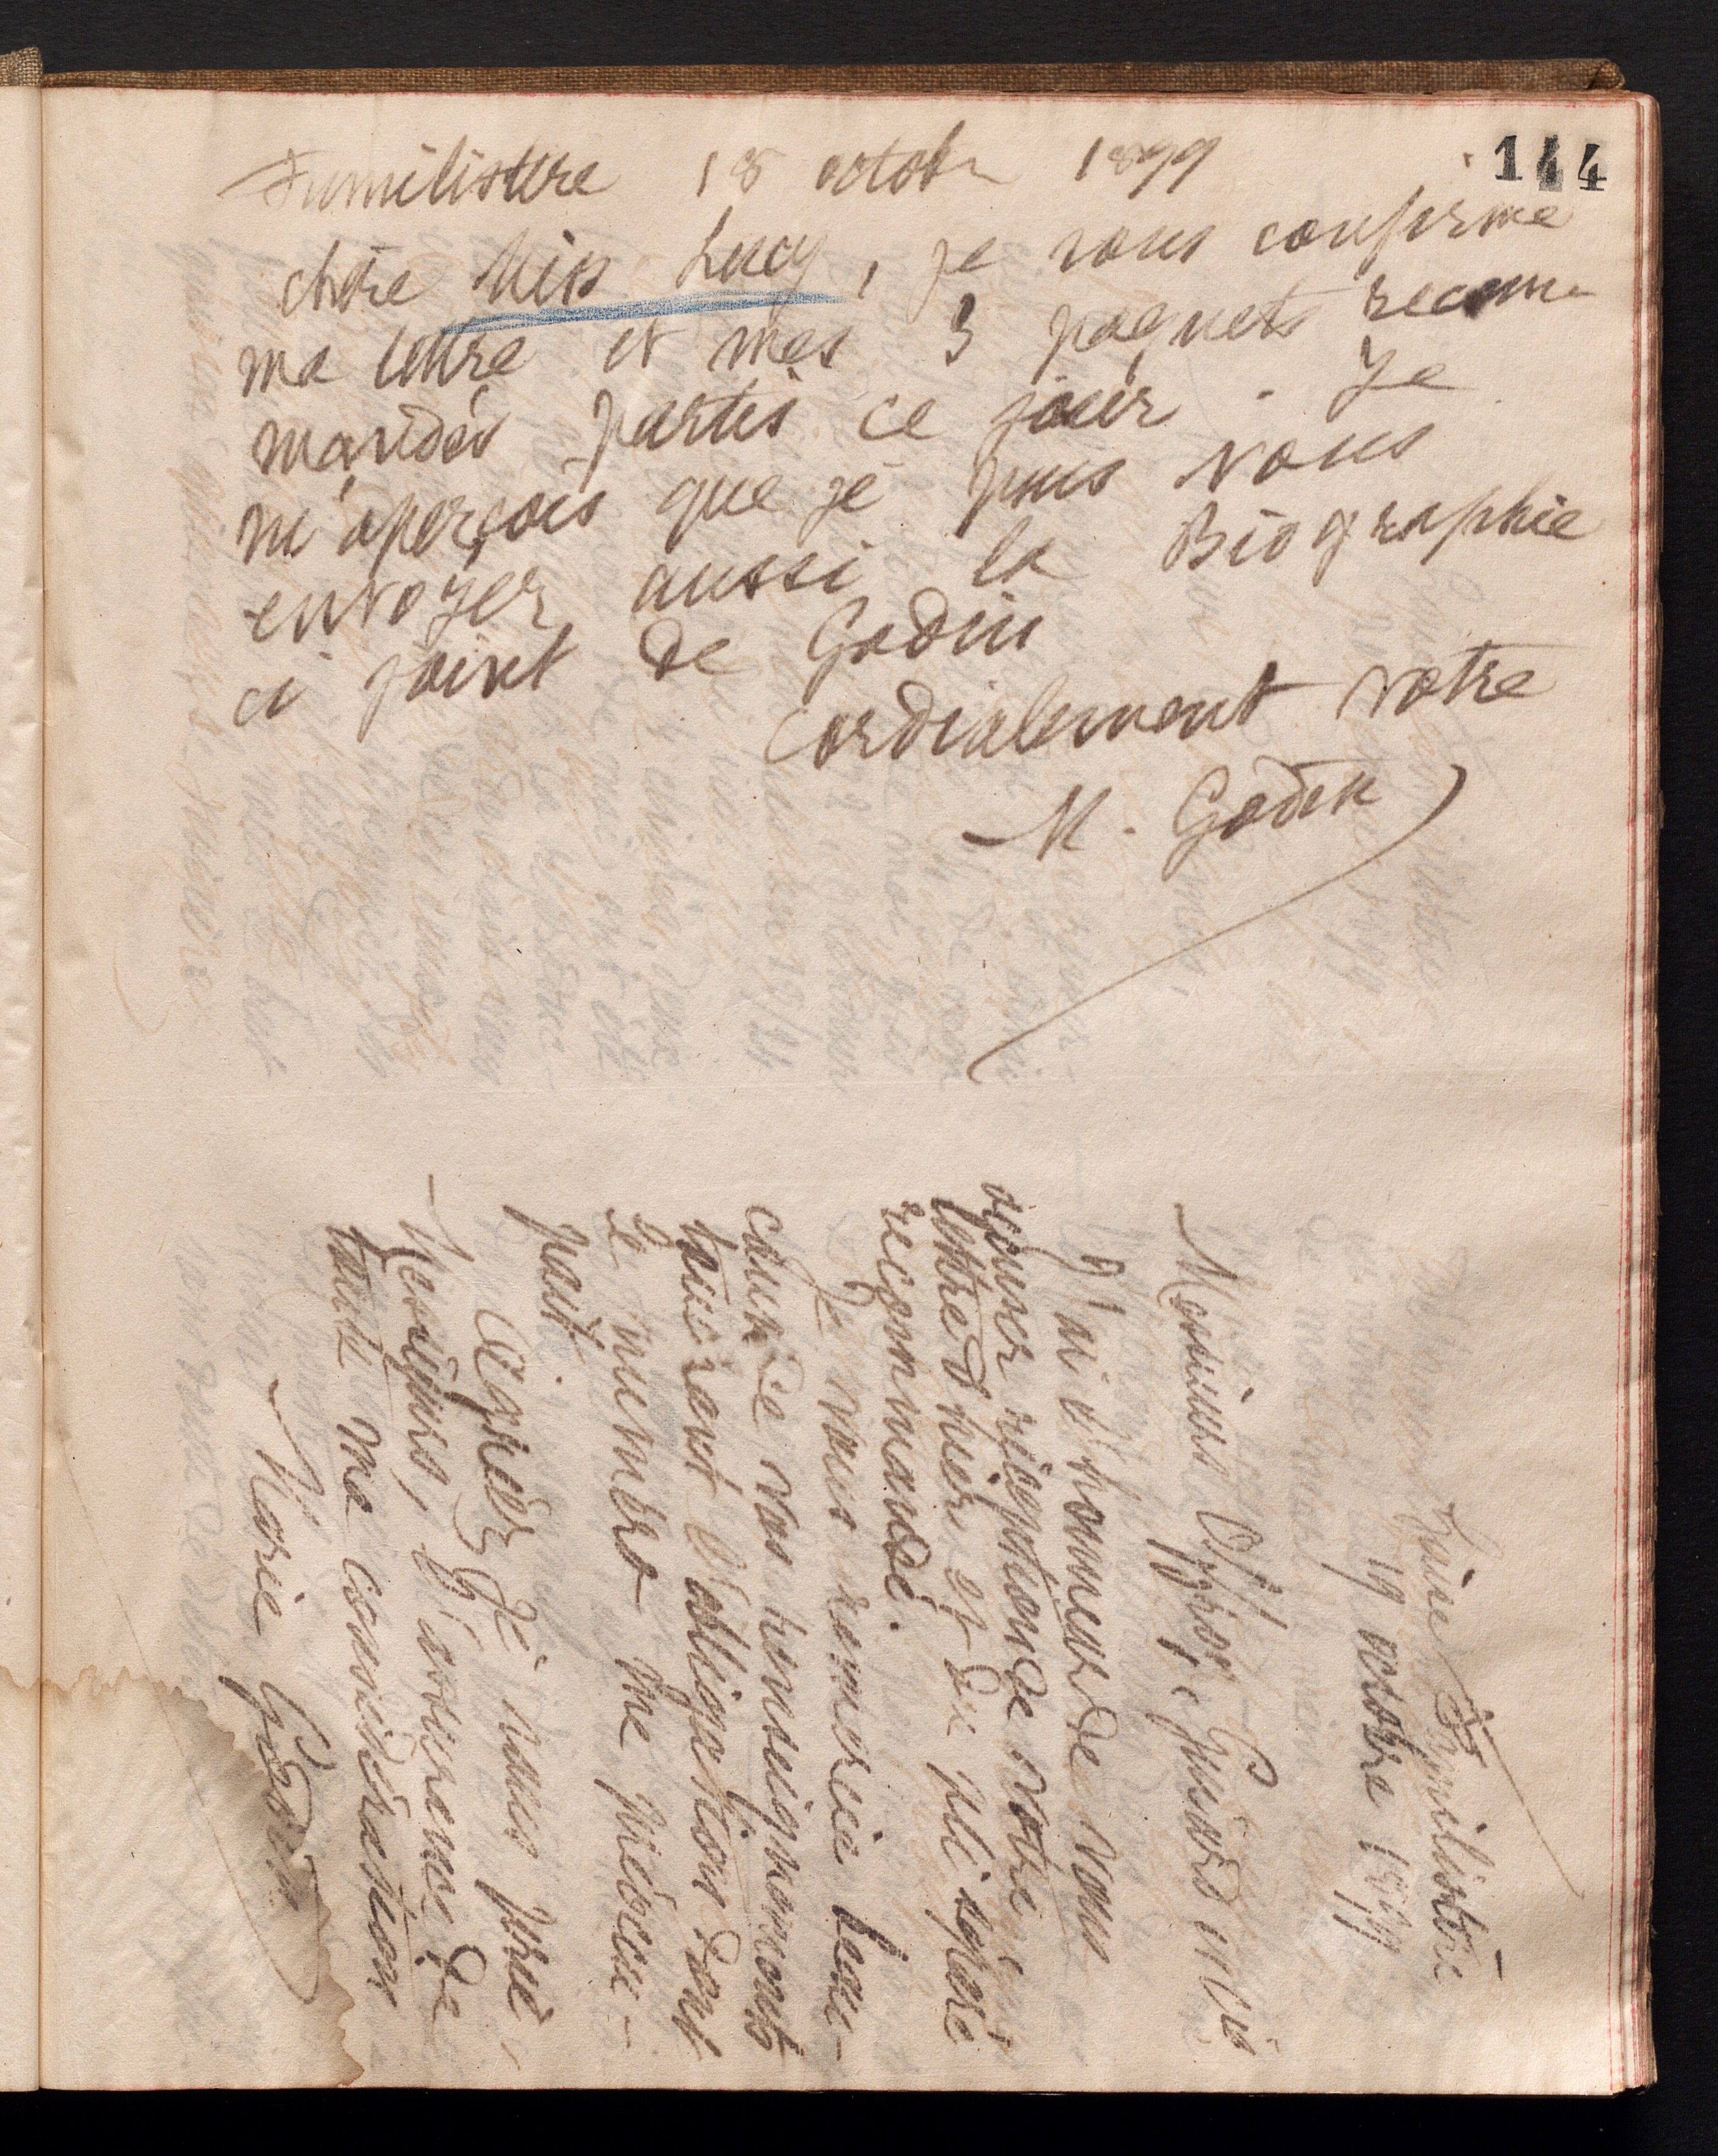 144
Familistère 18 octobre 1899
chère Miss Lucy, je vous confirme
ma lettre et mes 3 paquets recom
mandés partis ce jour. Je
m'aperçois que je puis vous
envoyer aussi la Biographie
ci joint de Godin
Cordialement votre
M. Godin
Guise Familistère
19 octobre 1899
Messieurs Offroy, Guiard et Cie
J'ai l'honneur de vous
accuser réception de votre
lettre d'hier et du pli séparé
recommandé.
Je vous remercie beau-
coup de vos renseignements
touchant l'obligation dont
le numéro me préoccu-
pait.
Agréez je vous prie,
Messieurs, l'assurance de
toute ma considération
Marie Godin